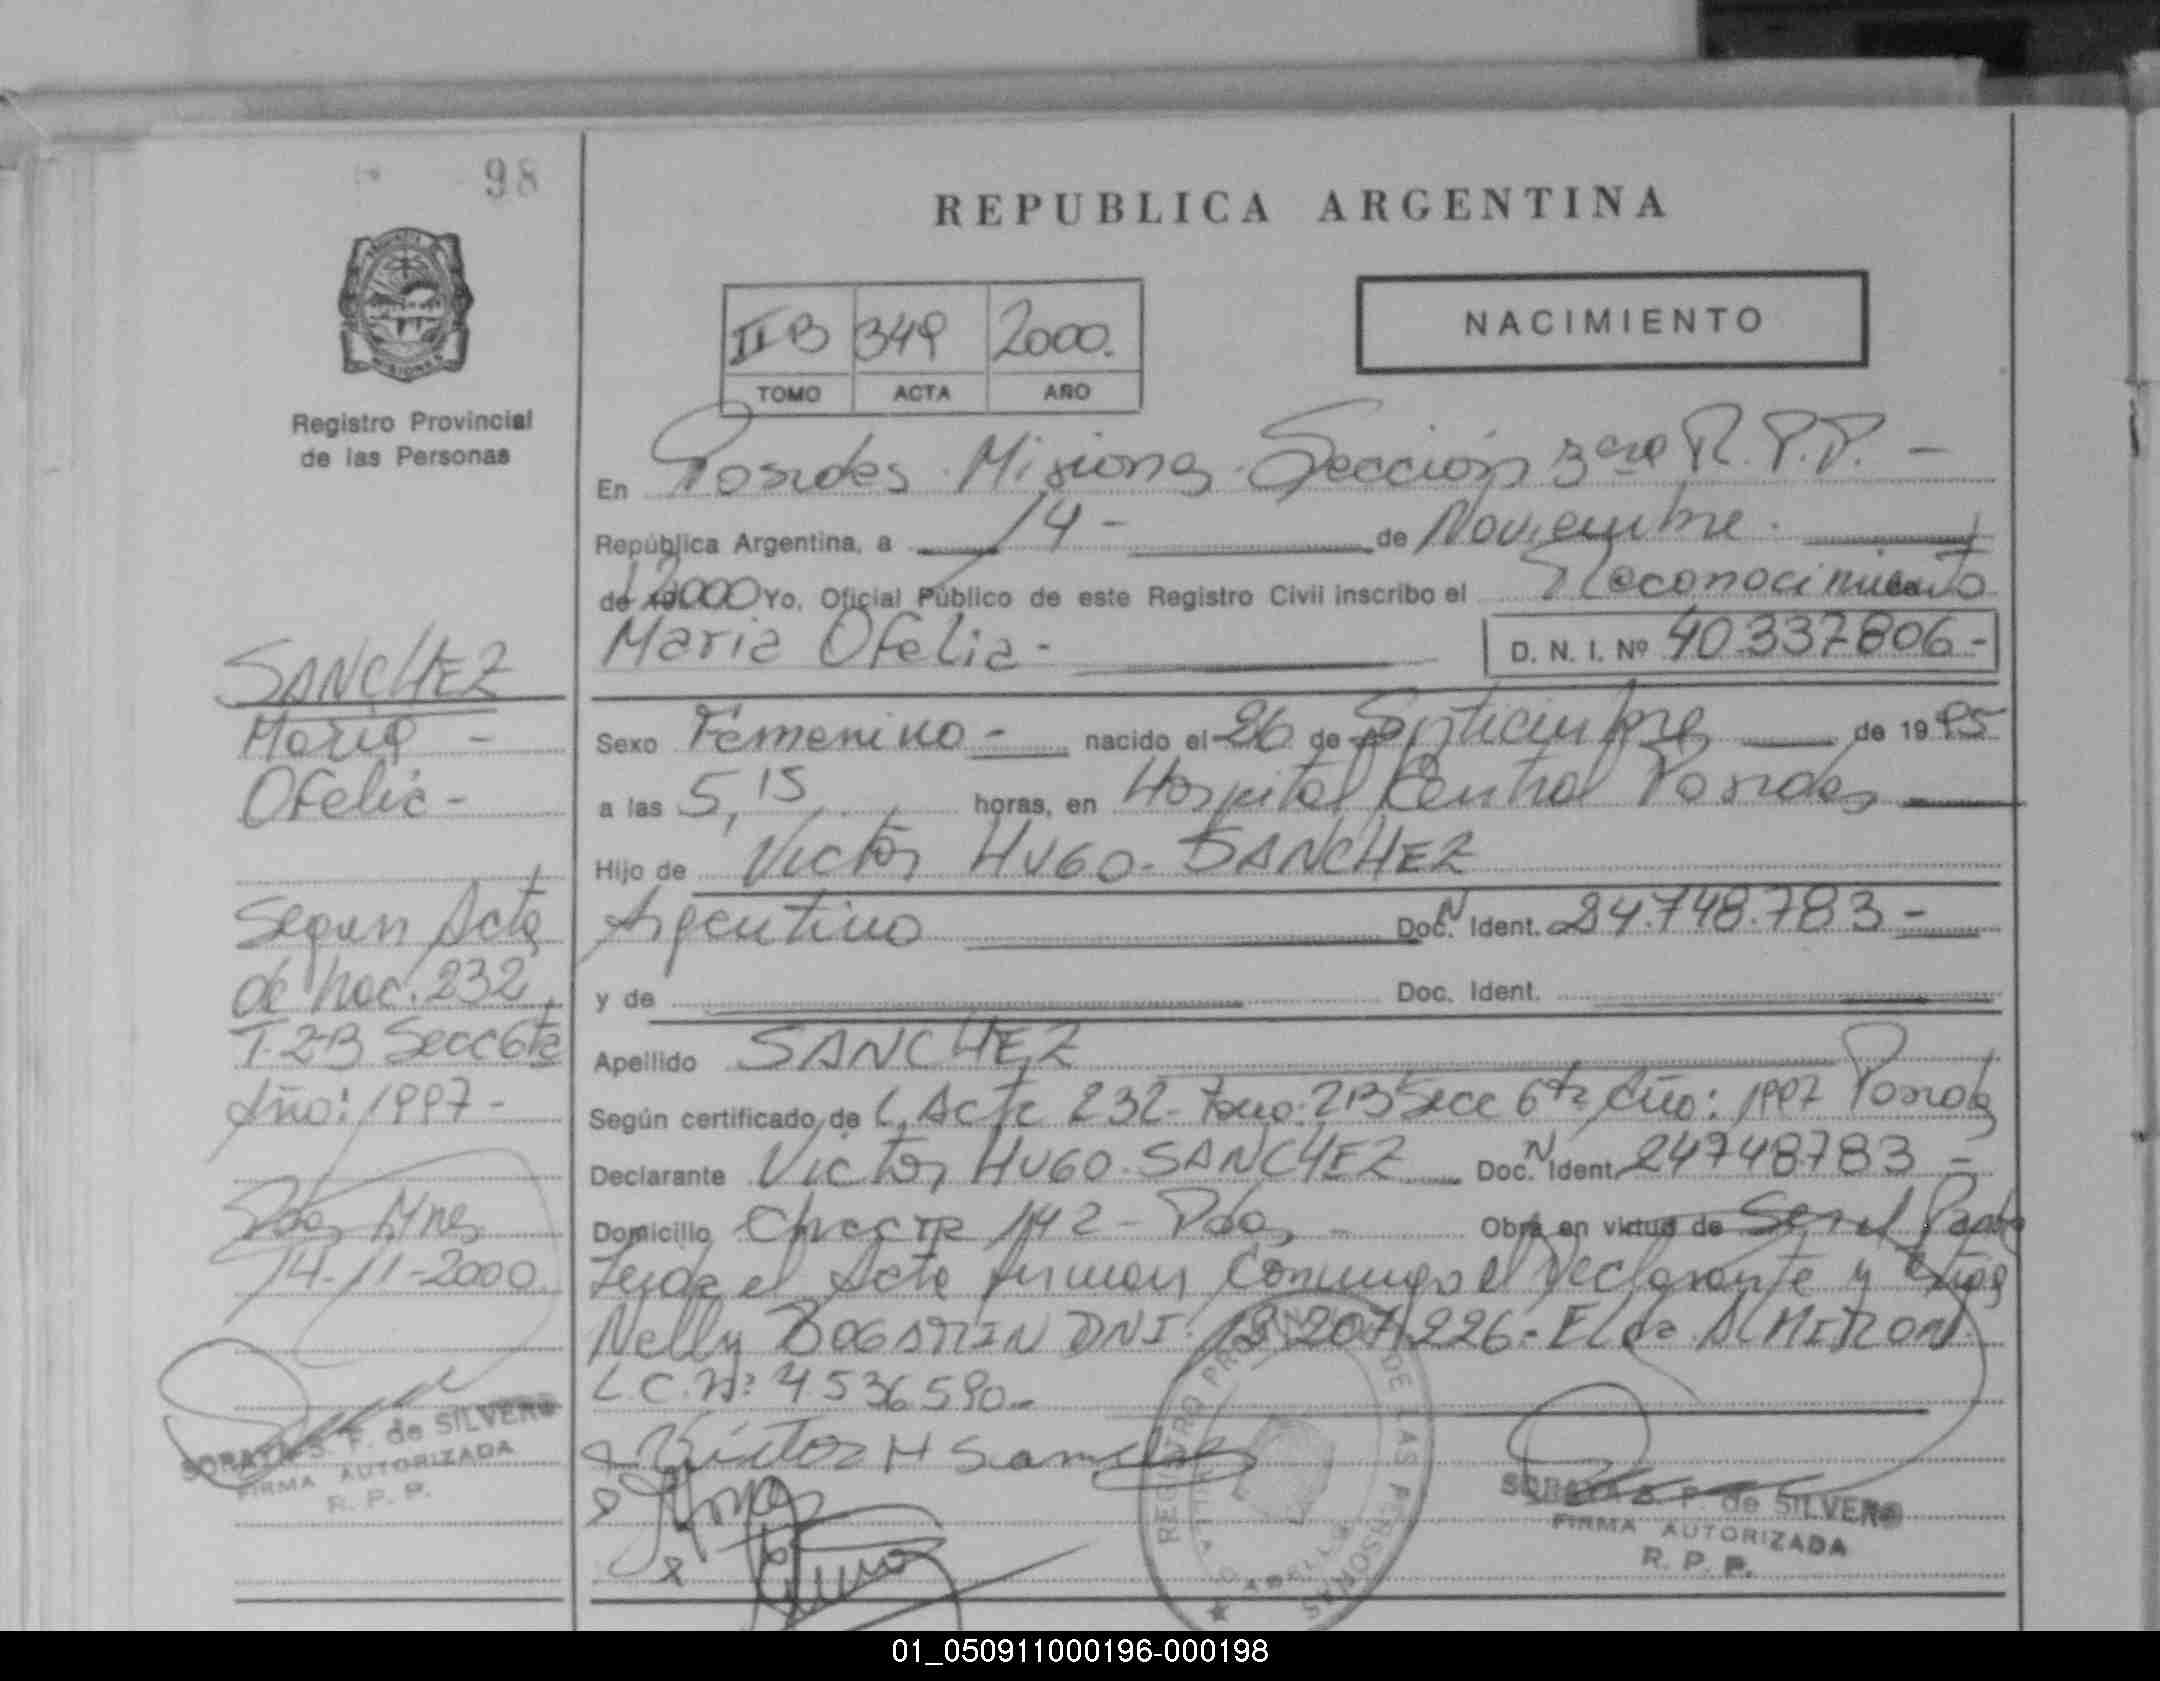 98
REPUBLICA ARGENTINA
NACIMIENTO
II B 349 2000.
TOMO ACTA AÑO
Registro Provincial
de las Personas
En Posadas Misiones Sección 3era R.P.P. -
República Argentina, a 14 - de Noviembre.
de 2000 Yo, Oficial Público de este Registro Civil inscribo el Reconocimiento
Maria Ofelia - D. N. I. Nº 40.337.806 -
SANCHEZ
Maria -
Ofelia -
Sexo Femenino - nacido el 26 de Septiembre de 1995
a las 5,15 horas, en Hospital Central Posadas
Hijo de Victor HUGO - SANCHEZ
Argentino Doc. N Ident. 24.748.783 -
y de Doc. Ident.
Apellido SANCHEZ
Según certificado de Acta 232 - Tomo: 2B Secc 6ta Año: 1997 Posadas
Declarante Victor HUGO SANCHEZ Doc. N Ident. 24748783 -
Domicilio 142 - Pdas - Obra en virtud de Ser el Padre
Leida el Acta firman Conmigo el Declarante y
Nelly DNI. 12.207.226 - Elda ALMIRON.
L.C. Nº: 4536590 -
Segun Acta
de Nac. 232
T. 2-B Secc 6ta
Año: 1997 -
Pdas Mnes
14-11-2000
Victor H Sanchez
S. F. de SILVERO
FIRMA AUTORIZADA
R. P. P.
S. F. de SILVERO
FIRMA AUTORIZADA
R. P. P.
01_050911000196-000198